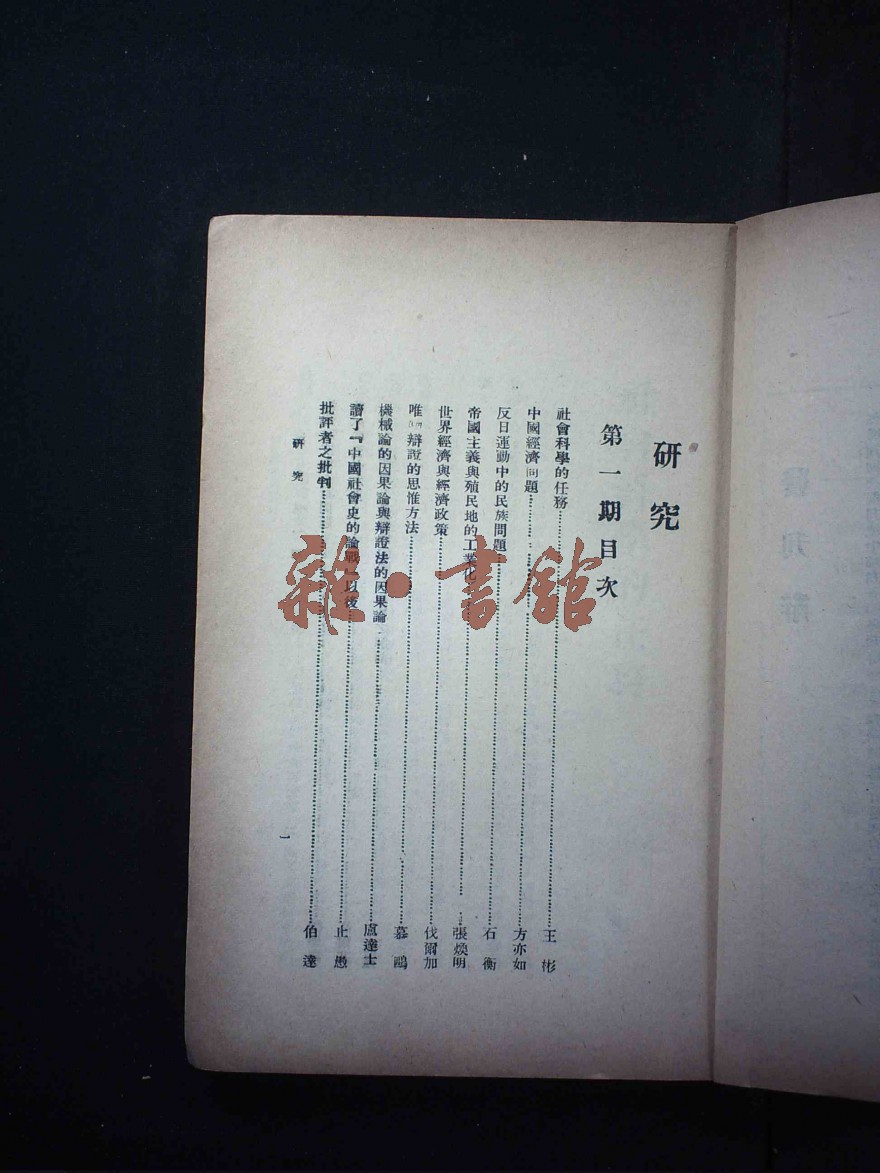 研究
第一期目次
社會科學的任務…………王彬
中國經濟問題…………方亦如
反日運動中的民族問題…………石衡
帝國主義與殖民地的工業化…………張煥明
世界經濟與經濟政策…………伐爾加
唯 辯證的思惟方法…………慕鷗
機械論的因果論與辯證法的因果論…………盧達士
讀了『中國社會史的論戰』以後…………止愚
批評者之批判…………伯達
研究
一
雜·書館